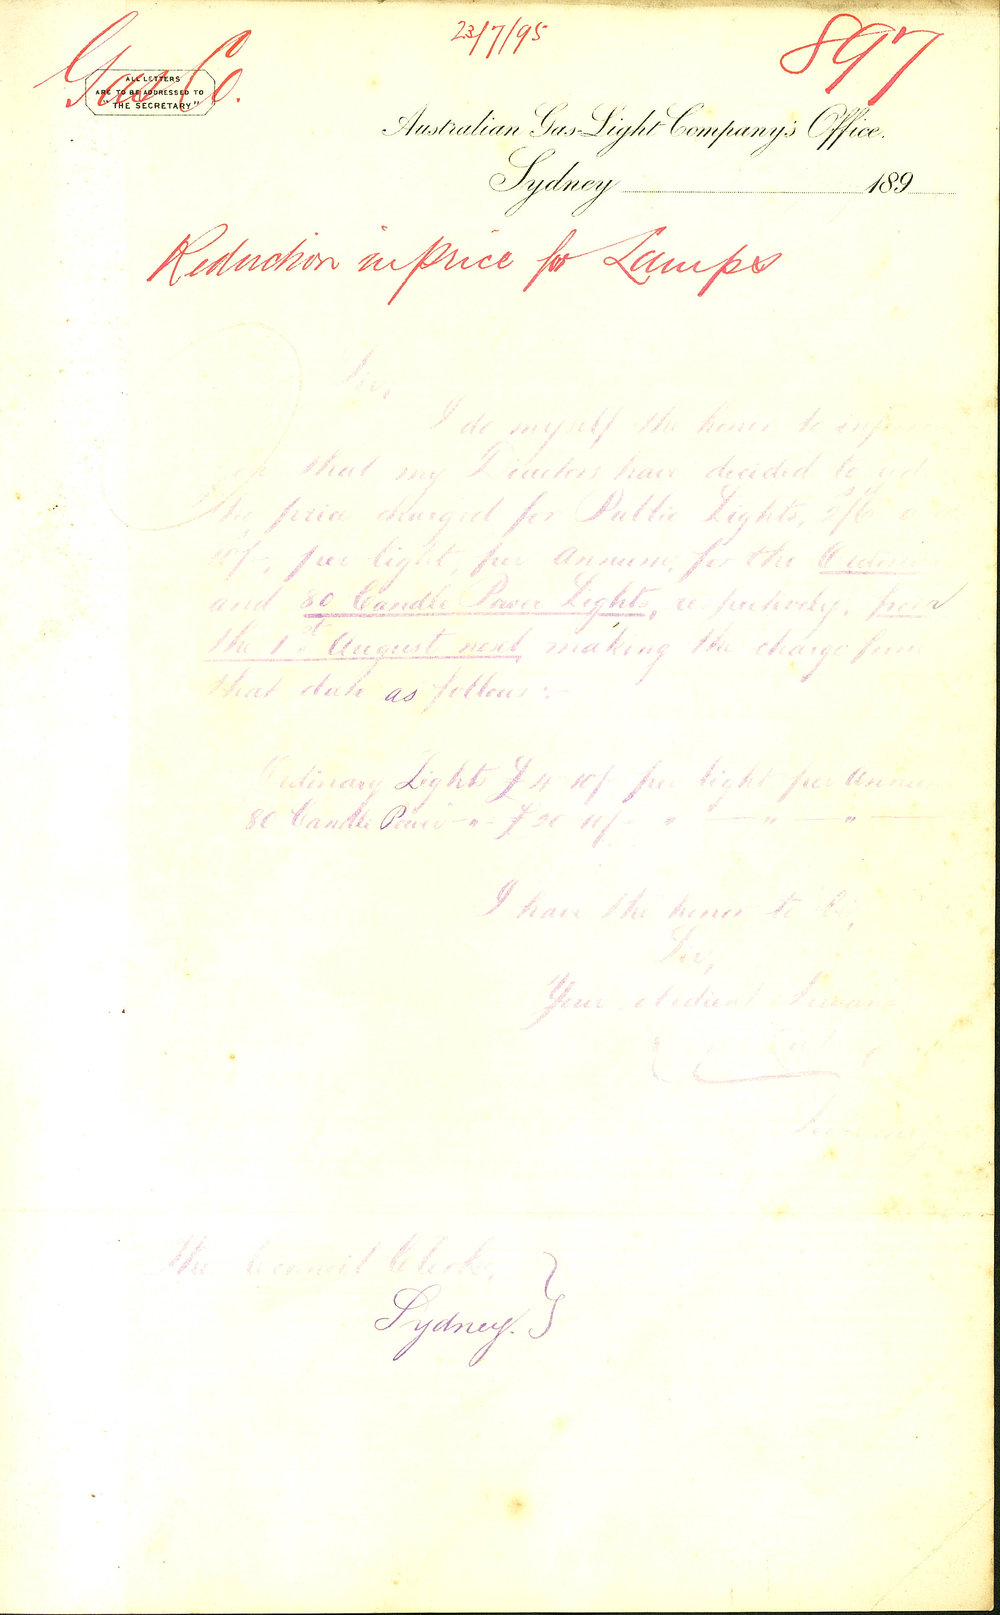 23/7/95
897
Gas Co.
ALL LETTERS
ARE TO BE ADDRESSED TO
"THE SECRETARY"
Australian Gas Light Company's Office.
Sydney 189
Reduction in price for Lamps
Sir,
I do myself the honor to inform
you that my Directors have decided to
the price charged for Public Lights, 2/6 and
10/-, per light, per annum, for the Ordinary
and 80 Candle Power Lights, respectively, from
the 1st August next, making the charge from
that date as follows:-
Ordinary Lights £4 10/- per light per Annum
80 Candle Power - " - £20 " "
I have the honor to be,
Sir,
Your obedient Servant
Secretary
The Council Clerk,
Sydney.